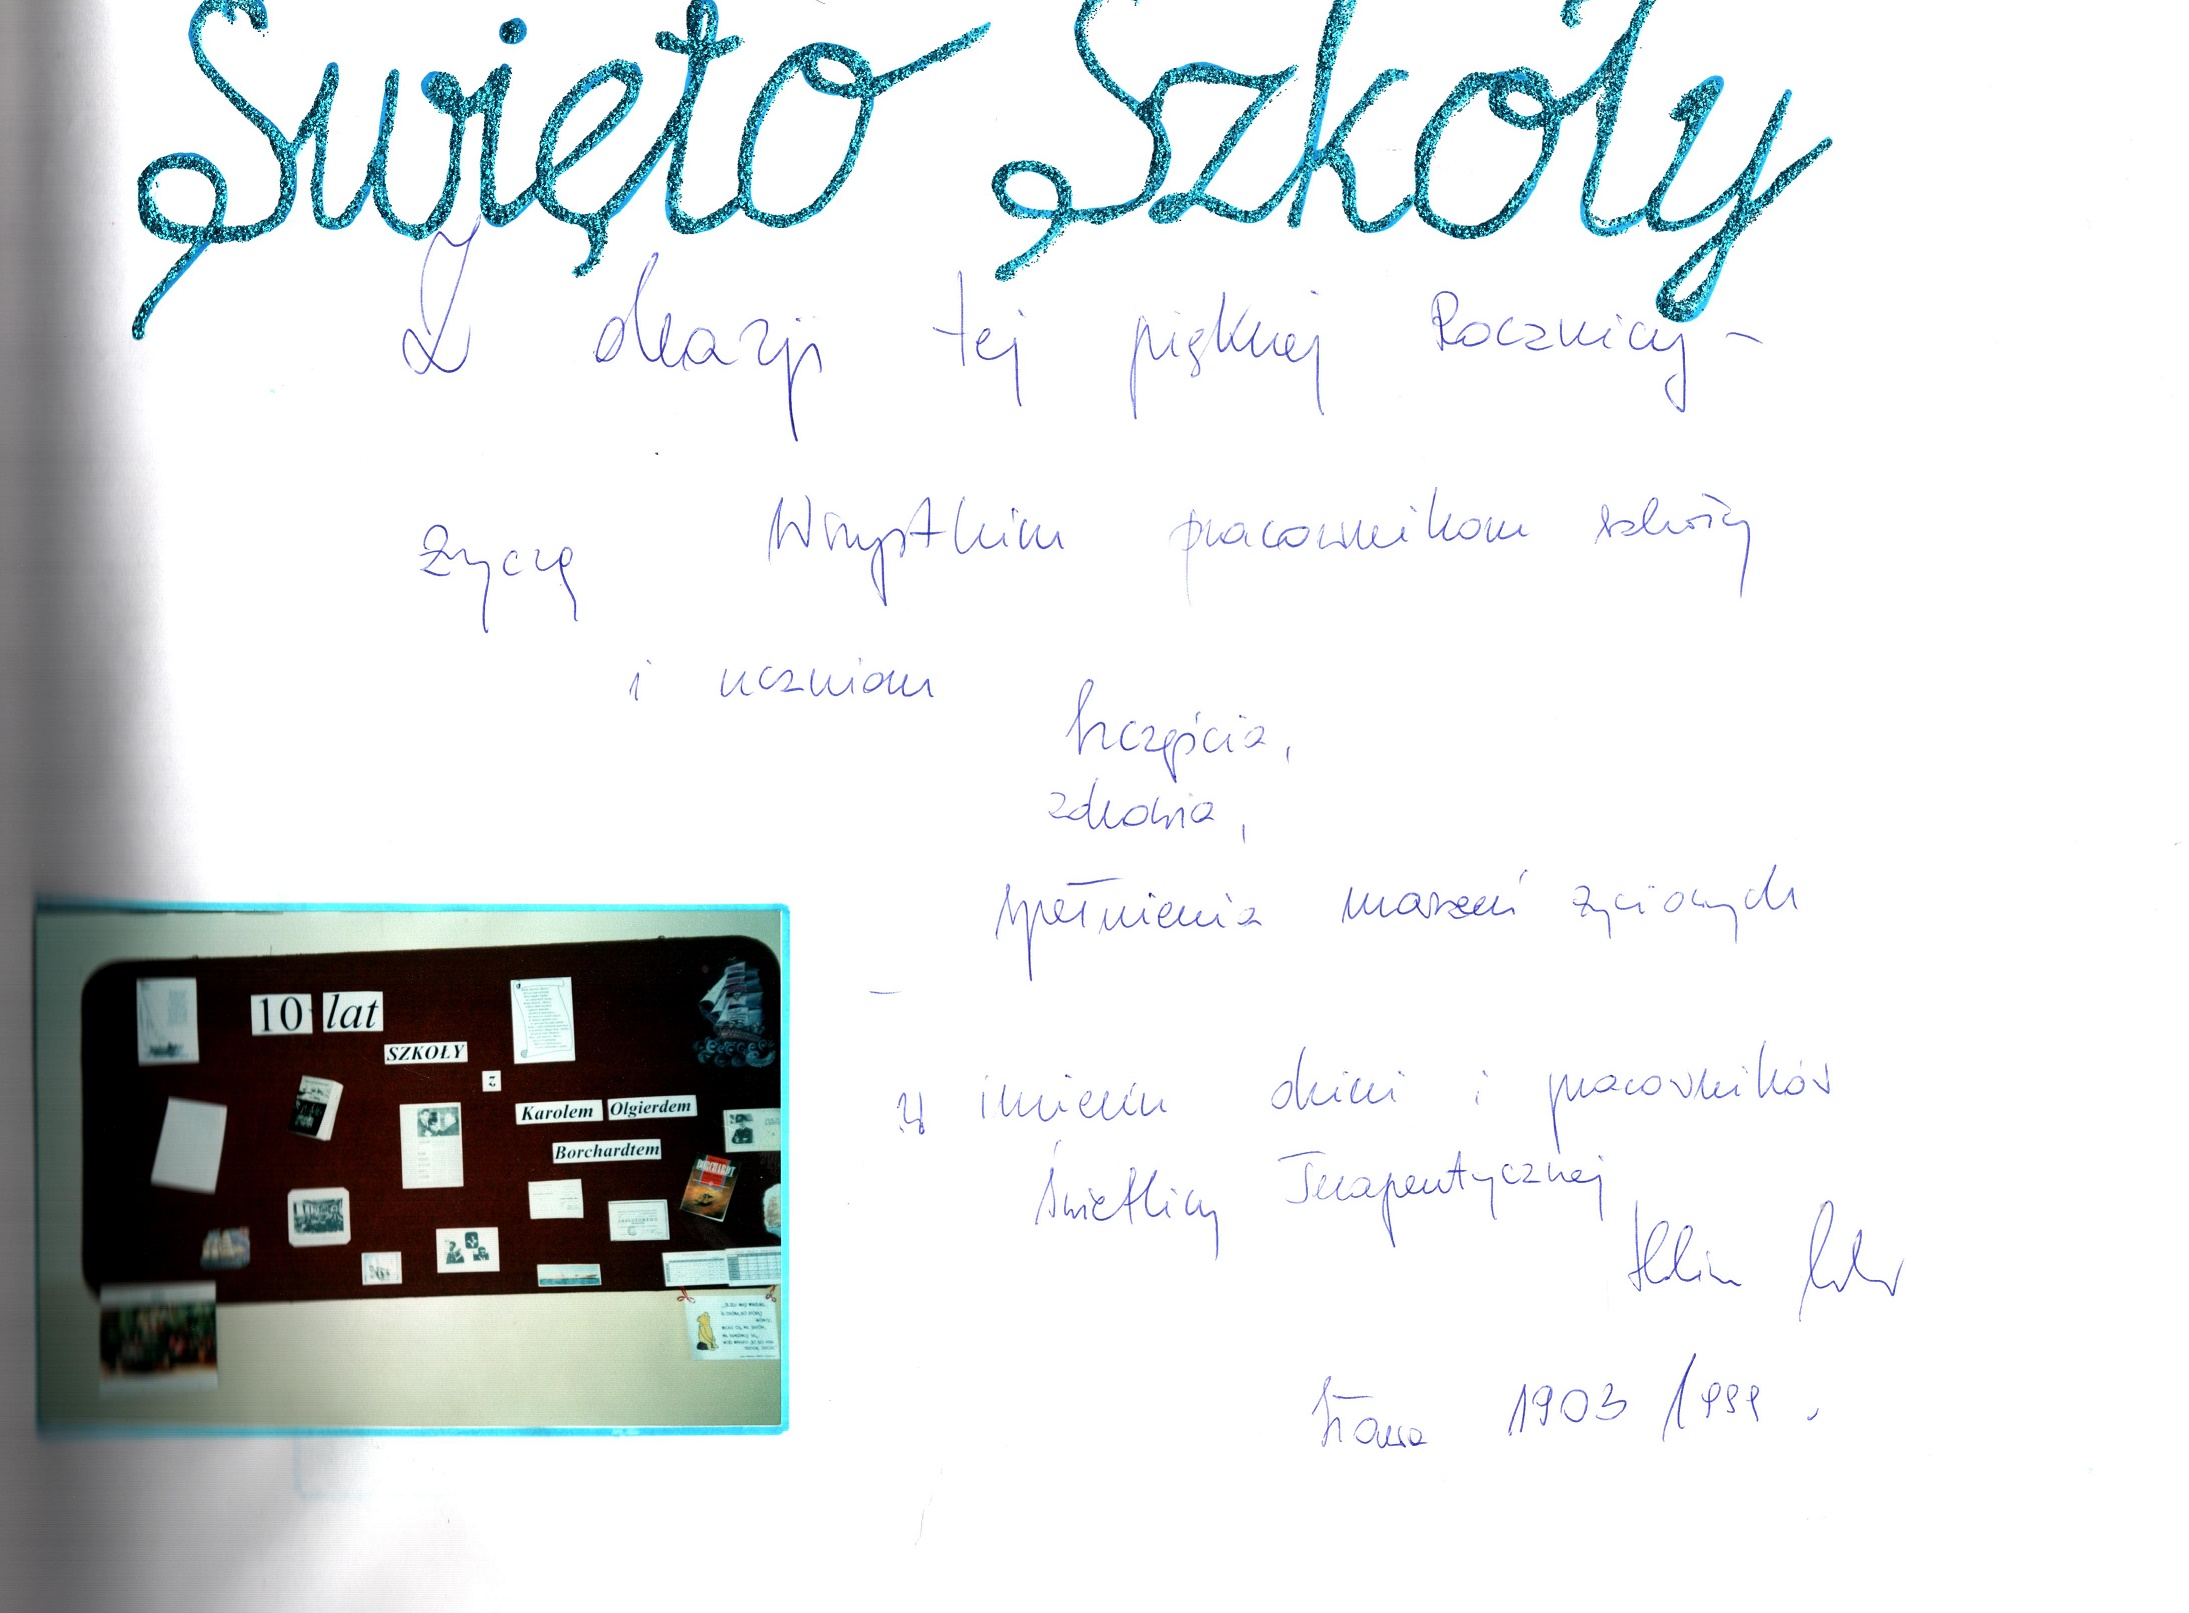 Święto Szkoły
Z okazji tej pięknej Rocznicy -
życzę Wszystkim pracownikom szkoły
i uczniom
szczęścia,
zdrowia,
spełnienia marzeń życiowych
W imieniu dzieci i pracowników
Świetlicy Terapeutycznej
1903 1999.
10 lat
SZKOŁY
z
Karolem Olgierdem
Borchardtem
BORCHARDT